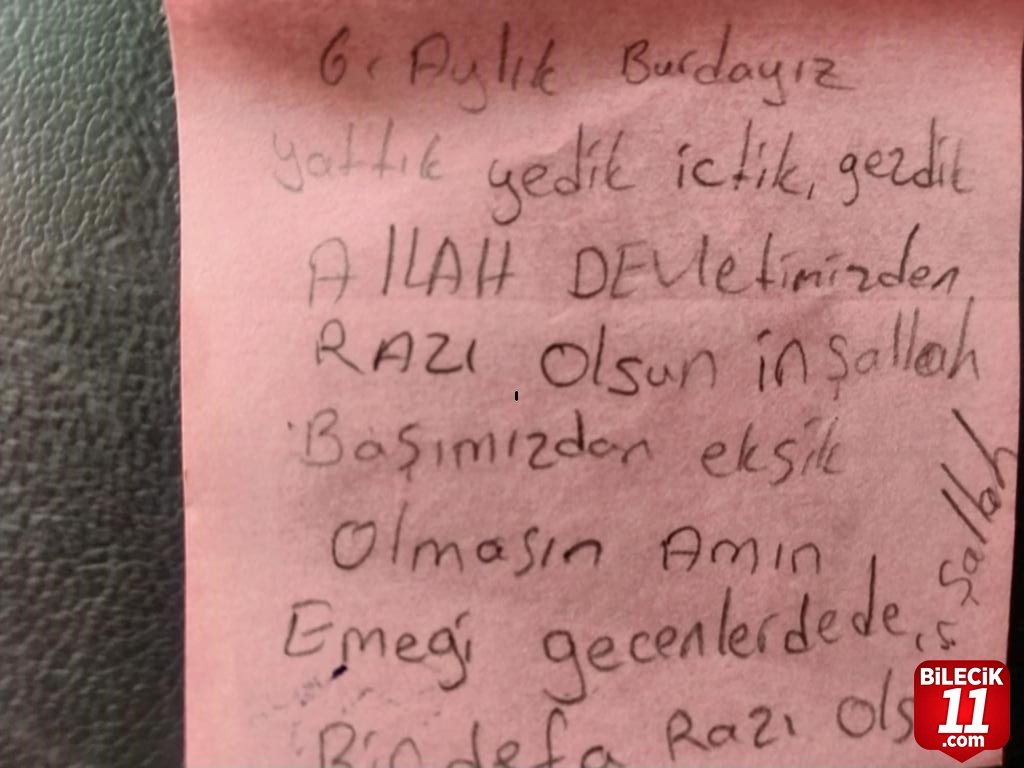 6. Aylık Burdayız
yattık yedik ictik, gezdik
AllAH DEVletimizden
RAZI Olsun inşallah
Başımızdan ekşik
Olmaşın Amın
Emeği gecenlerdede, işallah
Bin defa RAZI Ols
BiLECiK
11
.com